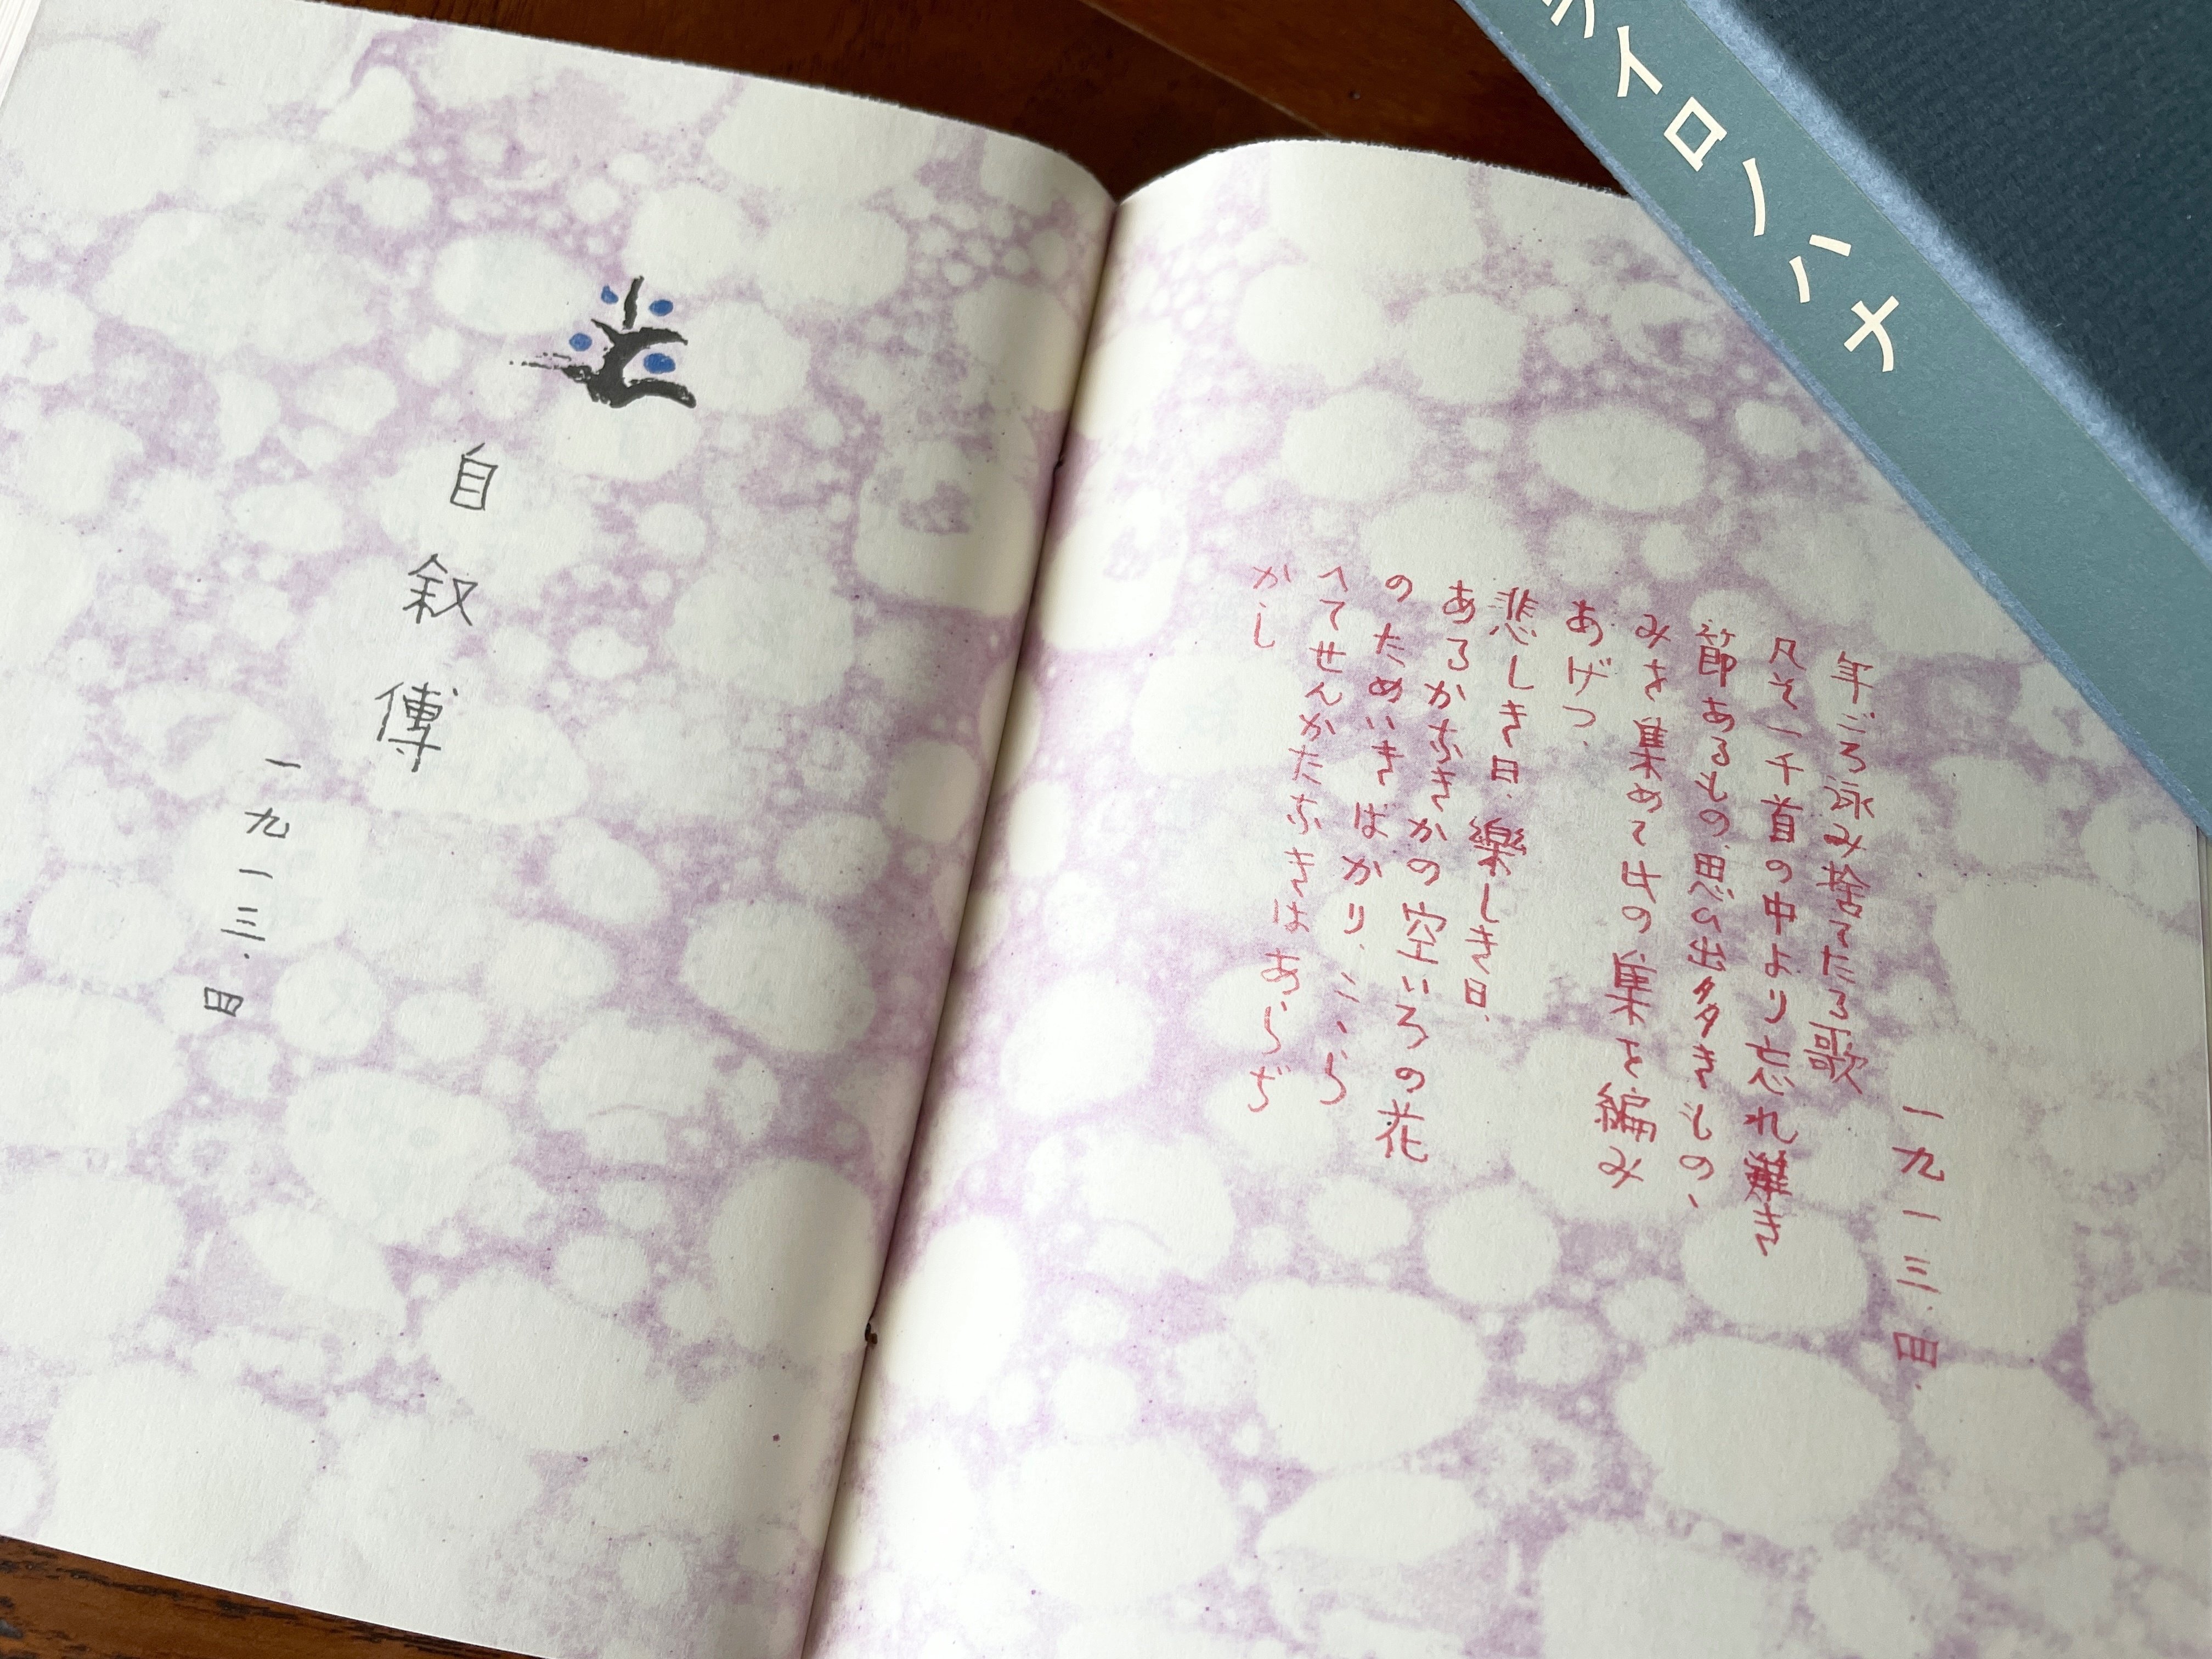 ライロノハナ
一九一三.四.
年ごろ詠み捨てたる歌
凡そ一千首の中より忘れ難き
節あるもの、思ひ出多きもの、
みを集めて此の集を編み
あげつ、
悲しき日、樂しき日、
あるかなきかの空いろの花
のためいきばかり、こゝら
へてせんかたなきはあらぢ
かし
自叙傳
一九一三.四